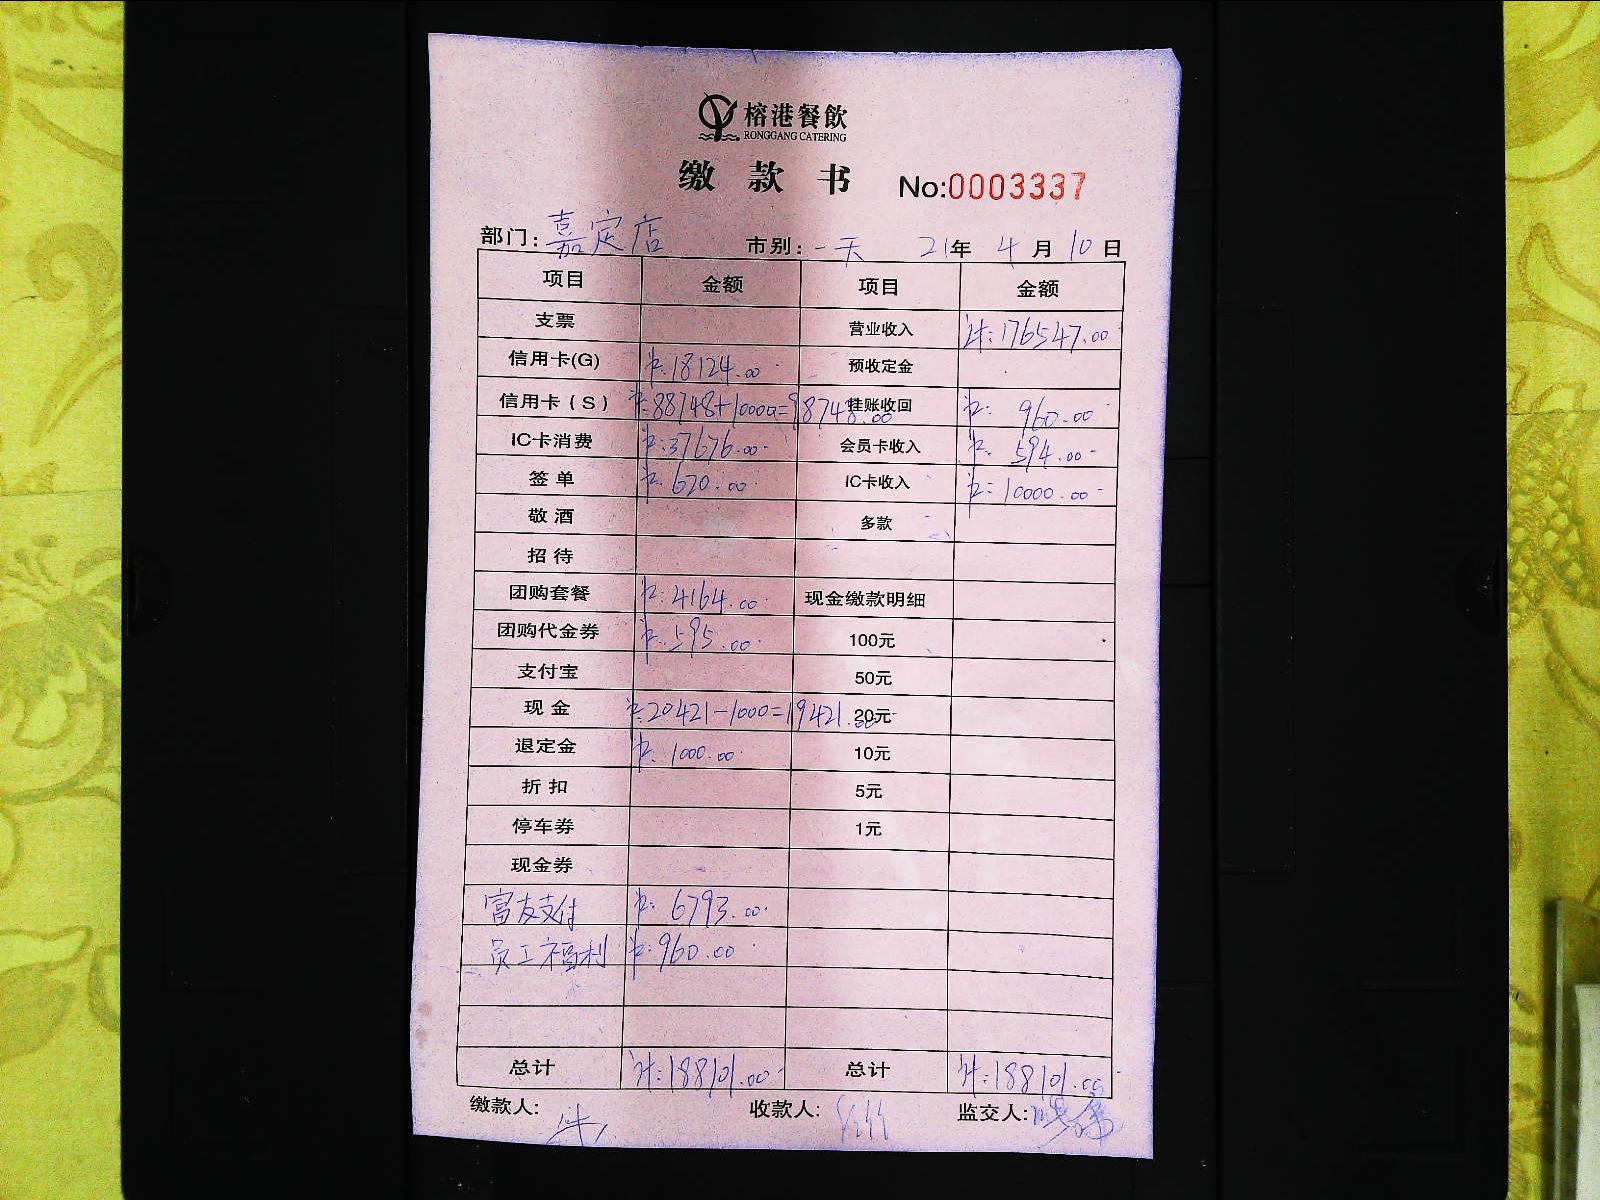 榕港餐飲
RONGGANG CATERING
缴款书 No:0003337
部门: 嘉定店 市别: 一天 21年 4月 10日
项目 金额 项目 金额
支票 营业收入 计:176547.00
信用卡(G) 18124.00 预收定金
信用卡(S) 88748+10000=98748.00 挂账收回 960.00
IC卡消费 37676.00 会员卡收入 594.00
签单 620.00 IC卡收入 10000.00
敬酒 多款
招待
团购套餐 4164.00 现金缴款明细
团购代金券 595.00 100元
支付宝 50元
现金 20421-1000=19421.00 20元
退定金 1000.00 10元
折扣 5元
停车券 1元
现金券
富友支付 6793.00
员工福利 960.00
总计 计:188101.00 总计 计:188101.00
缴款人: 收款人: 监交人: